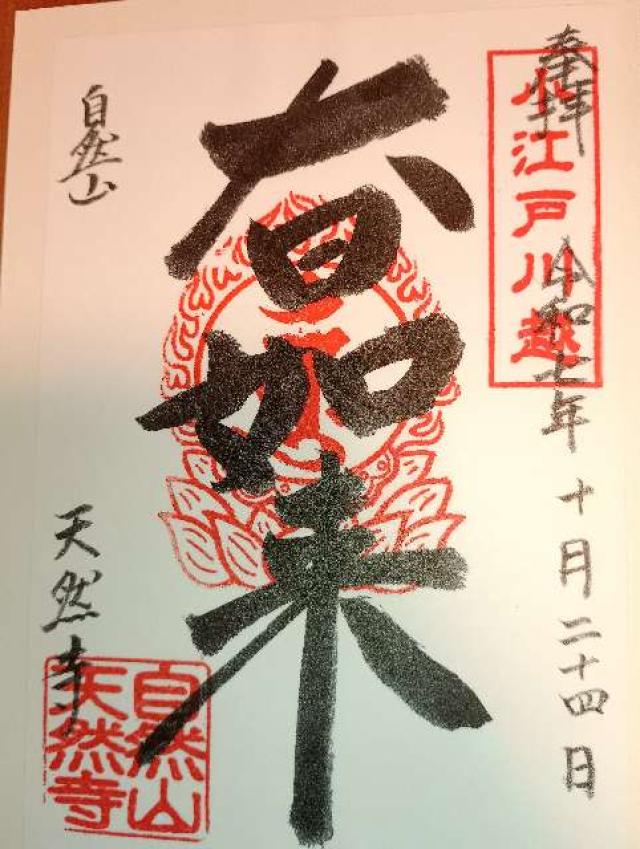 奉拝
小江戸川越
令和七年十月二十四日
大日如来
自然山
天然寺
自然山
天然寺